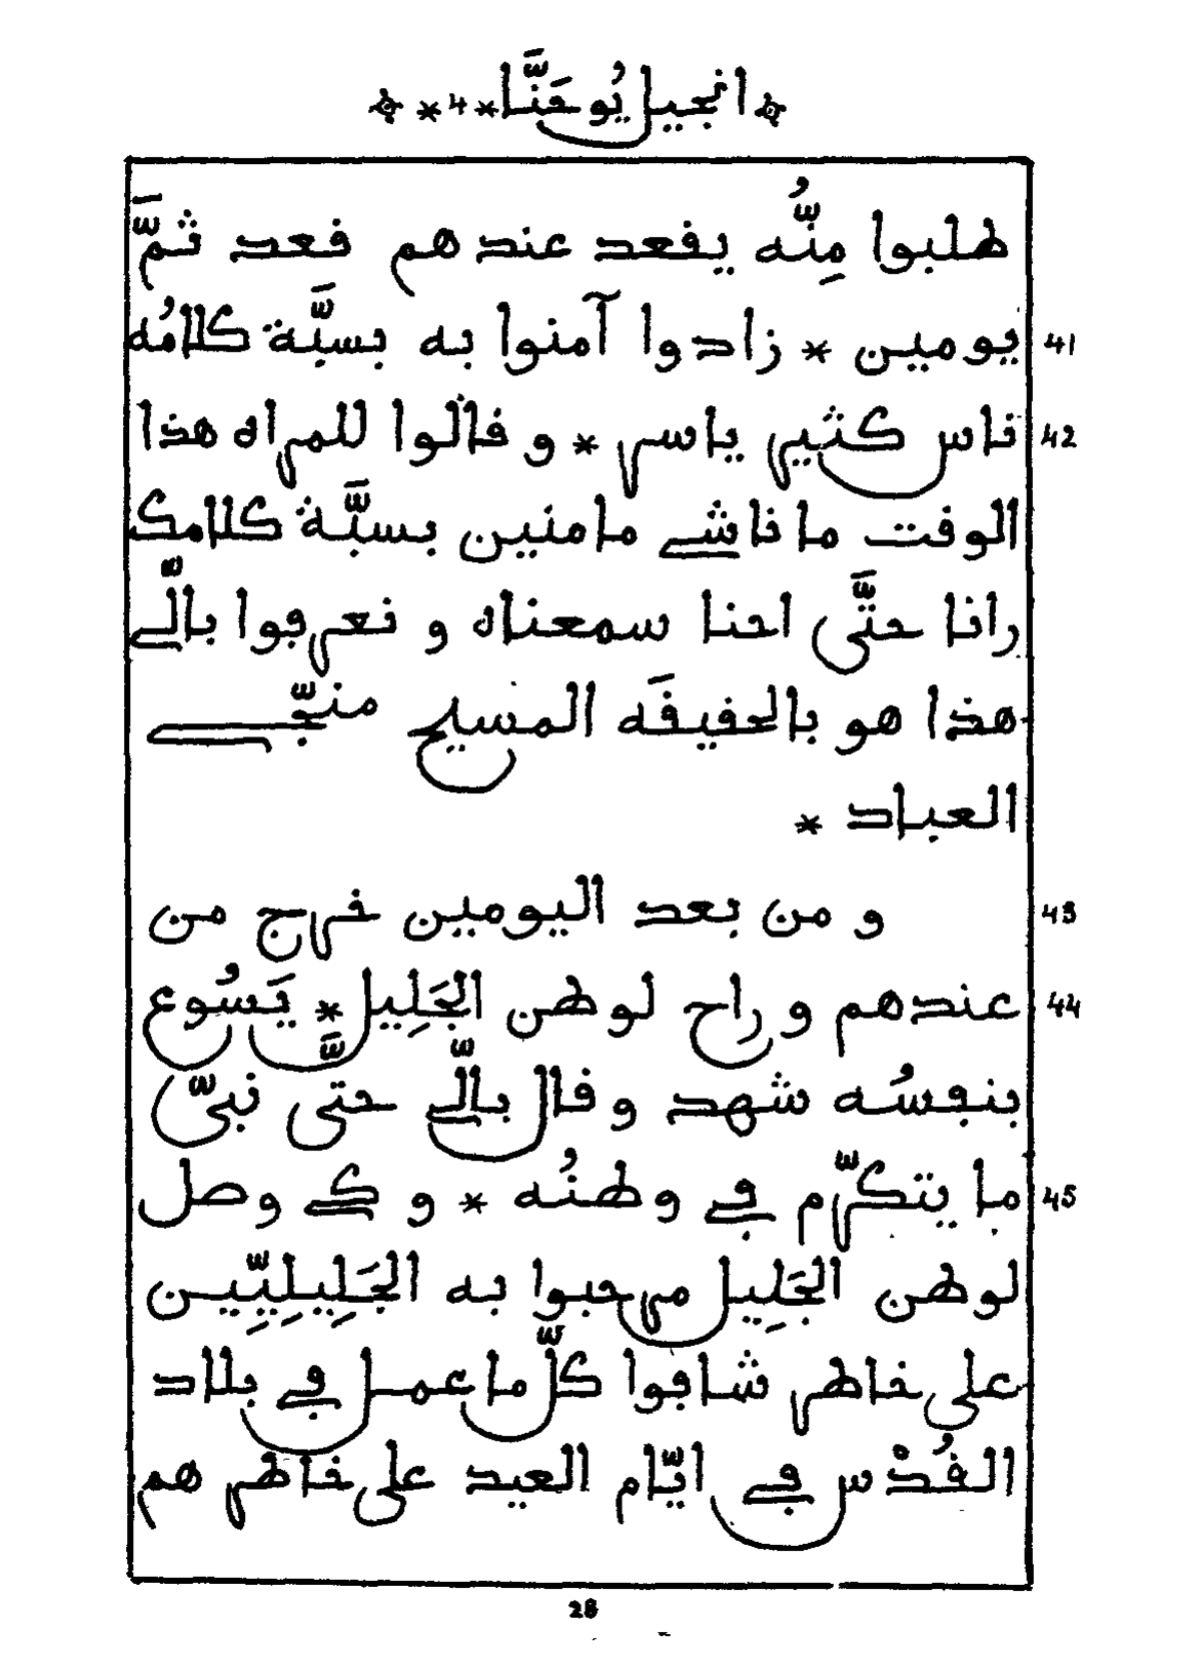 انجيل يُوحَنَّا * 4 *
طلبوا مِنُّه يقعد عندهم قعد ثمَّ
41 يومين * زادوا آمنوا به بسبَّة كلامُه
42 ناس كثير ياسر * و قالوا للمراه هذا
الوقت ما ناشي مامنين بسبَّة كلامك
رانا حتَّى احنا سمعناه و نعرفوا بالّي
هذا هو بالحقيقَه المسيح منجّي
العباد *
43 و من بعد اليومين خرج من
44 عندهم و راح لوطن الجَلِيل * يَسُوع
بنفسُه شهد و قال بالّي حتَّى نبيّ
45 ما يتكرّم في وطنُه * و كي وصل
لوطن الجَلِيل مرحبوا به الجَلِيلِيِّين
على خاطر شافوا كلّ ما عمل في بلاد
القُدْس في ايّام العيد على خاطر هم
28